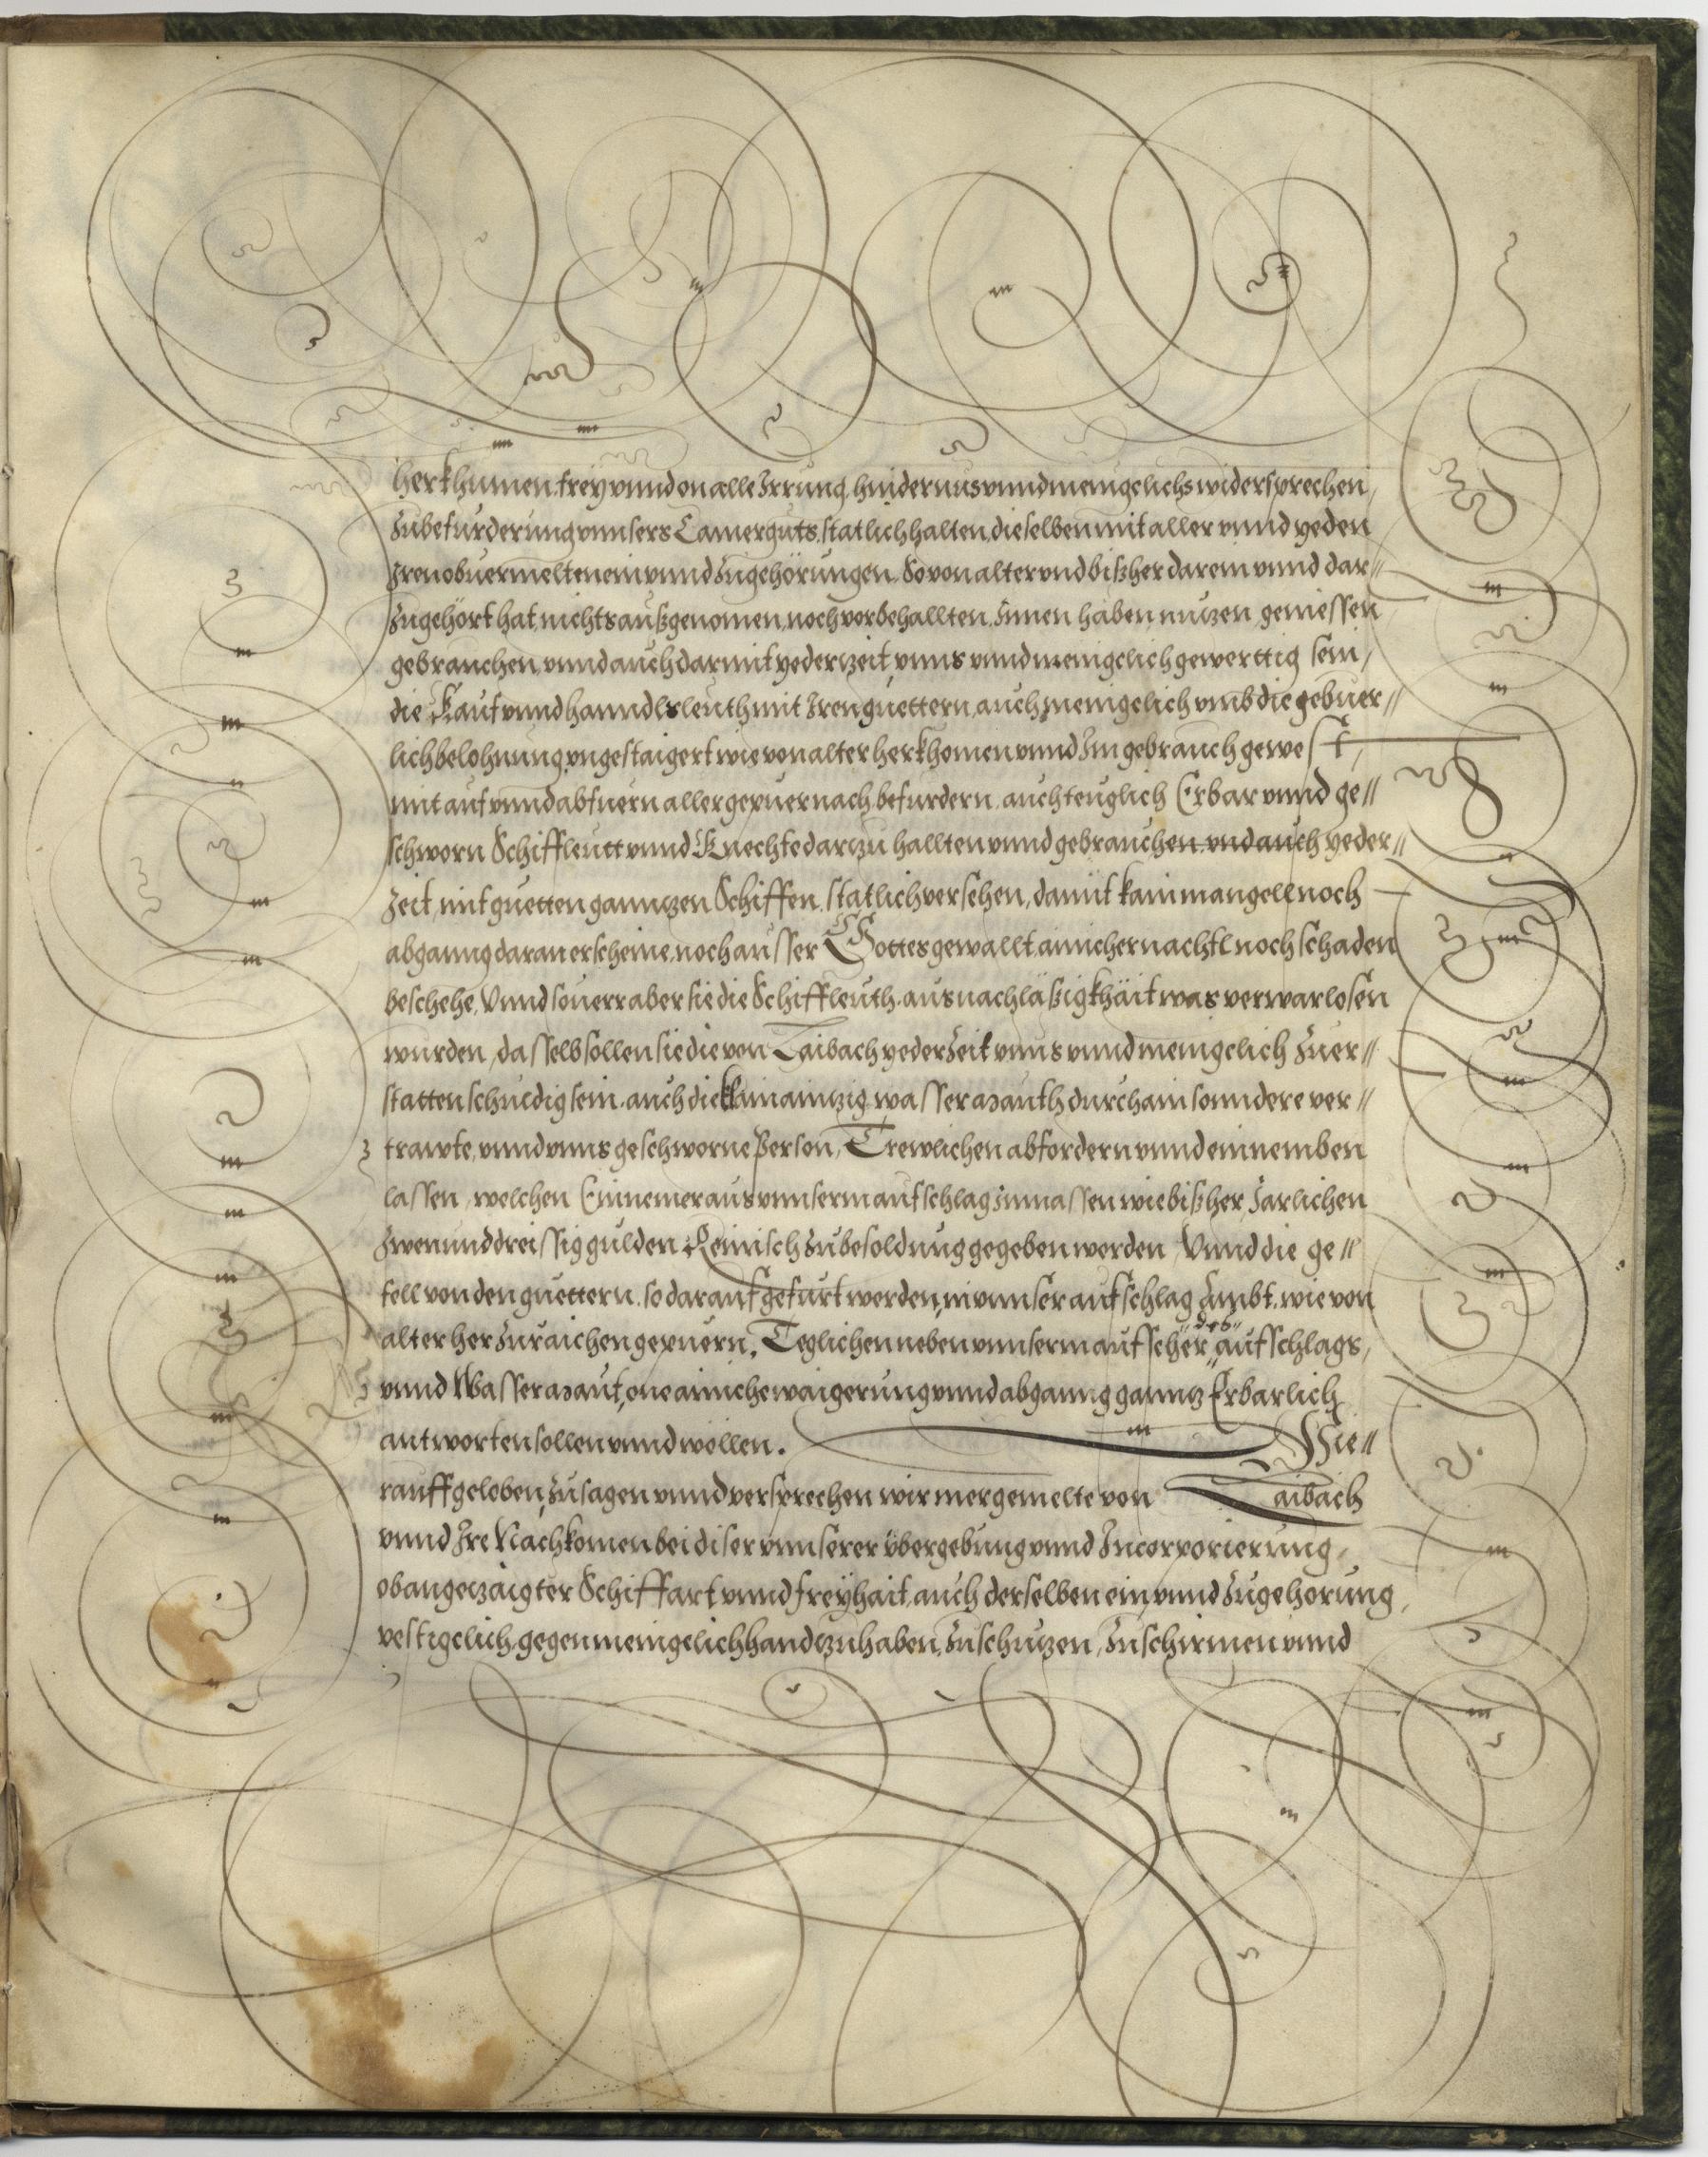 herkhumen, frey vnnd on alle Irrung, hindernus vnnd menigelichs widersprechen,
Zubefurderung vnnsers Camerguts, statlich halten, dieselben mit aller vnnd yeden
Iren obuermelten ein vnnd Zugehörungen, So von alter vnd bißher darein vnnd dar⸗
Zugehört hat, nichts außgenomen, noch vorbehallten, Innen haben nutzen, geniessen
gebrauchen, vnnd auch darmit yederzeit, vnns vnnd menigelich gewerttig sein,
die Kauf vnnd hanndlsleuth mit Iren guettern, auch menigelich vmb die gebuer⸗
lich belohnung, vngestaigert wie von alter herkhomen vnnd Im gebrauch gewest,
mit auf vnnd abfuern aller gepuer nach, befurdern, auch teuglich Erbar vnnd ge⸗
schworn Schiffleutt vnnd Knechte darzu hallten vnnd gebrauchen vnd auch yeder⸗
Zeit, mit guetten ganntzen Schiffen, statlich versehen, damit kain mangell noch
abganng daran erscheine, noch ausser Gottes gewallt ainicher nachtl noch schaden
beschehe, Vnnd souerr aber sie die Schiffleuth, aus nachläßigkhäit was verwarlosen
wurden, dasselb sollen sie die von Laibach yeder Zeit vnns vnnd menigelich Zuer⸗
statten schuldig sein, auch die klain ainitzig wasser mauth durch ain sonndere ver⸗
trawte, vnnd vnns geschworne Person, Trewlichen abfordern vnnd einnemben
lassen, welchen Einnemer aus vnnserm aufschlag Inmassen wie bißher, Järlichen
Zwenunddreissig gulden Reinisch Zu besoldung gegeben werden, Vnnd die ge⸗
fell von den guettern, so darauf gefürt werden, in vnnser aufschlag Ambt, wie von
alter her Zuraichen gepuern, Teglichen neben vnnserm aufseher des aufschlags,
vnnd Wasser maut, one ainiche waigerung vnnd abganng ganntz Erbarlich
antworten sollen vnnd wöllen. Hie⸗
rauff geloben, Zusagen vnnd versprechen wir mergemelte von Laibach
vnnd Ire Nachkomen bei diser vnnserer übergebung vnnd Incorporierung,
obangezaigter Schiffart vnnd freyhait, auch derselben ein vnnd Zugehorung,
vestigelich, gegen menigelich handtzuhaben, Zuschutzen, Zuschirmen vnnd